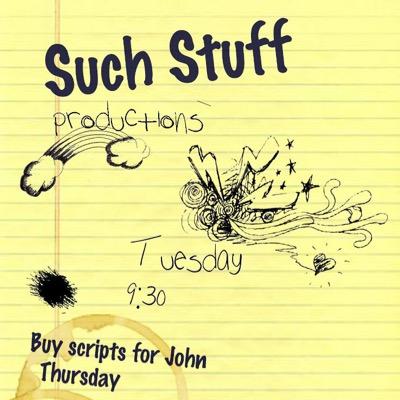 Such Stuff
productions
Tuesday
9:30
Buy scripts for John
Thursday